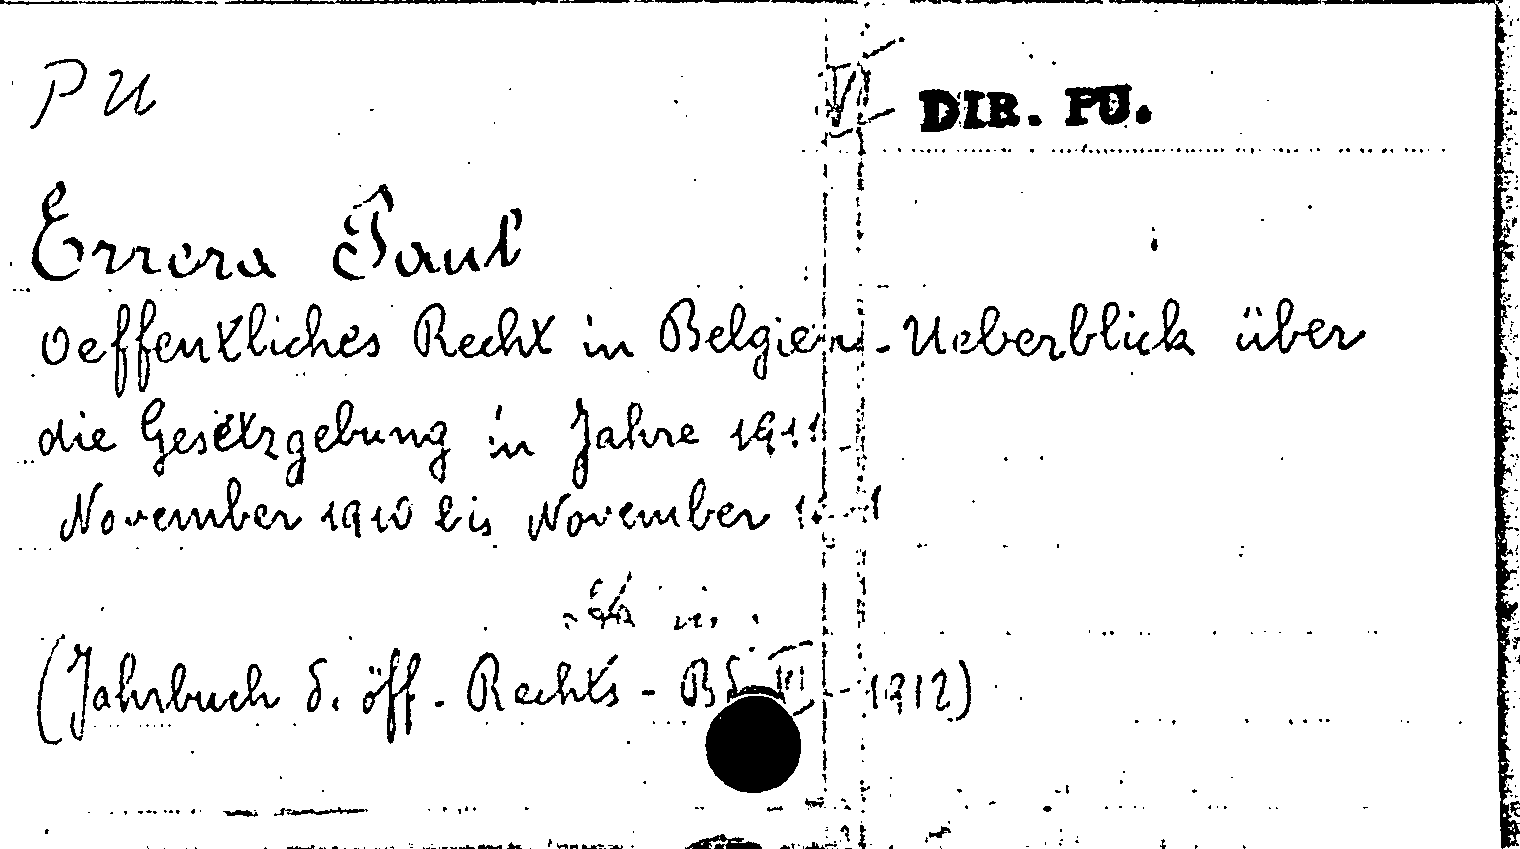 PU
V DIR. PU.
Errera Paul
Oeffentliches Recht in Belgien - Ueberblick über
die Gesetzgebung in Jahre 1911
November 1910 bis November
(Jahrbuch d. öff. Rechts - Bd VI - 1912)